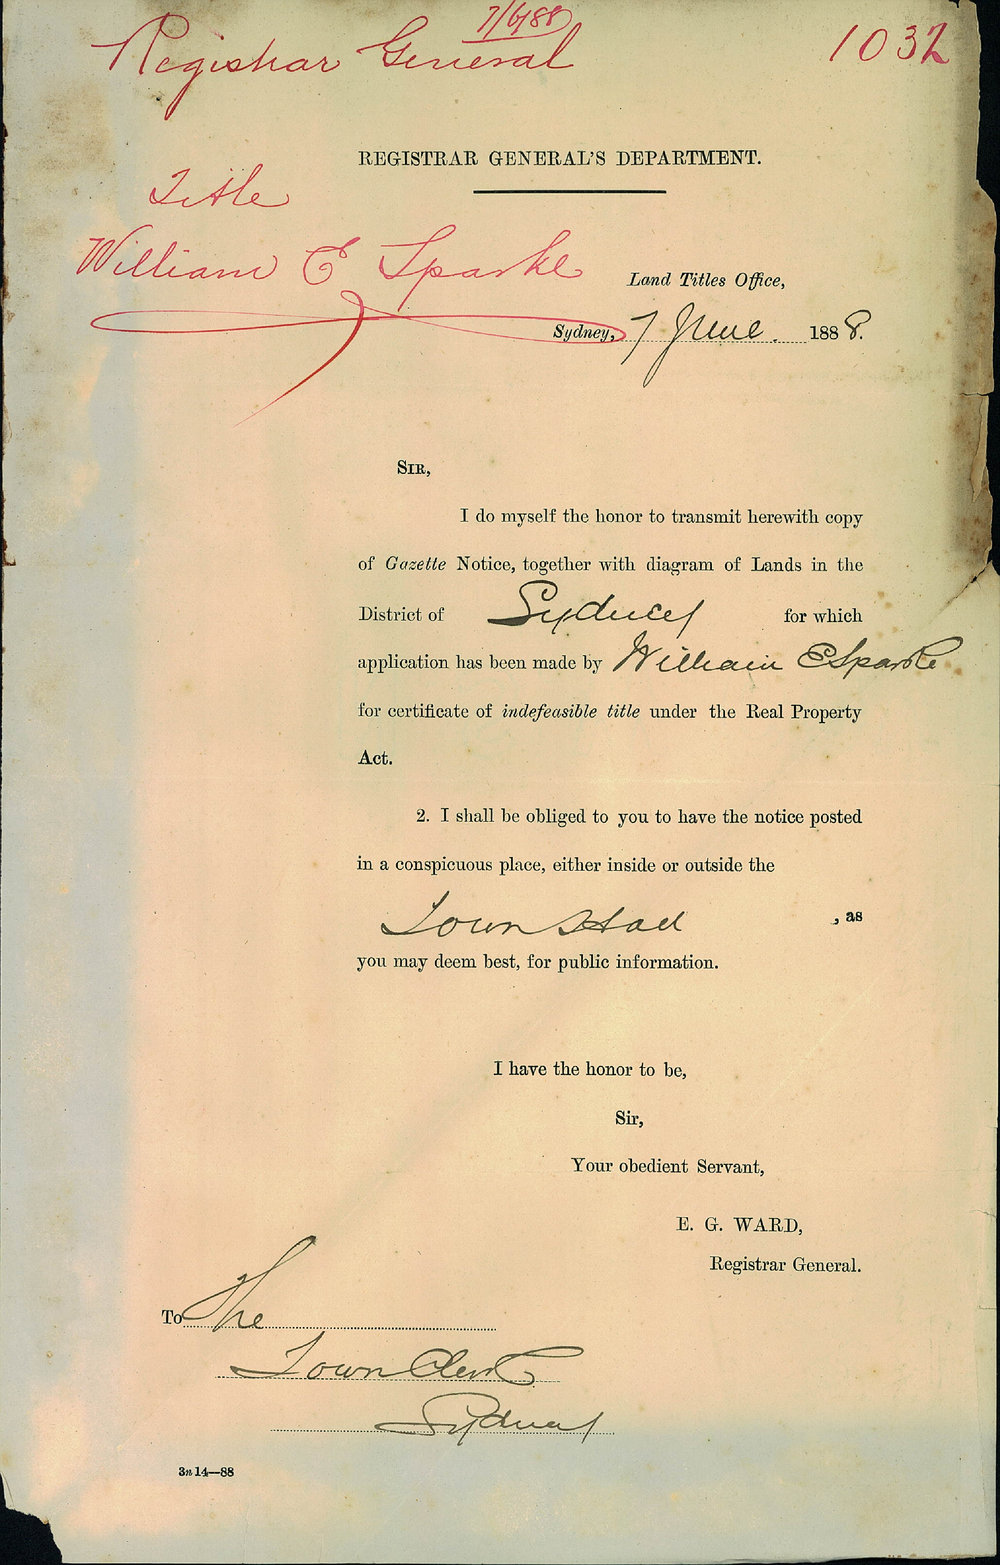 7/6/88
Registrar General
1032
REGISTRAR GENERAL'S DEPARTMENT.
Title
William E Sparke
Land Titles Office,
Sydney, 7 June. 1888.
SIR,
I do myself the honor to transmit herewith copy
of Gazette Notice, together with diagram of Lands in the
District of Sydney for which
application has been made by William E Sparke
for certificate of indefeasible title under the Real Property
Act.
2. I shall be obliged to you to have the notice posted
in a conspicuous place, either inside or outside the
Town Hall , as
you may deem best, for public information.
I have the honor to be,
Sir,
Your obedient Servant,
E. G. WARD,
Registrar General.
To The
Town Clerk
Sydney
3n 14—88